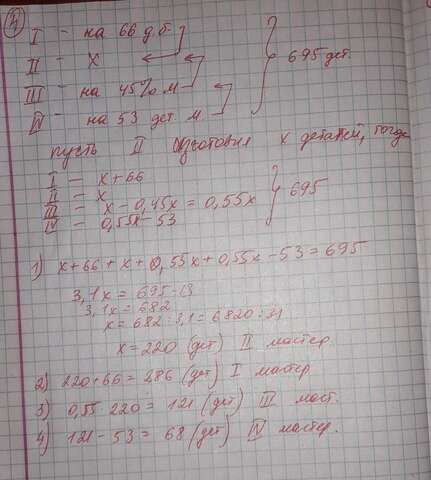 I - на 66 д б.
II - х
III - на 45% м
IV - на 53 дет. м.
695 дет.
пусть II изготовил х деталей, тогда
I - х + 66
II - х
III - х - 0,45х = 0,55х
IV - 0,55х - 53
695
1) х + 66 + х + 0,55х + 0,55х - 53 = 695
3,1х = 695 - 13
3,1х = 682
х = 682 : 3,1 = 6820 : 31
х = 220 (дет) II мастер
2) 220 + 66 = 286 (дет) I мастер
3) 0,55 · 220 = 121 (дет) III маст.
4) 121 - 53 = 68 (дет) IV мастер.